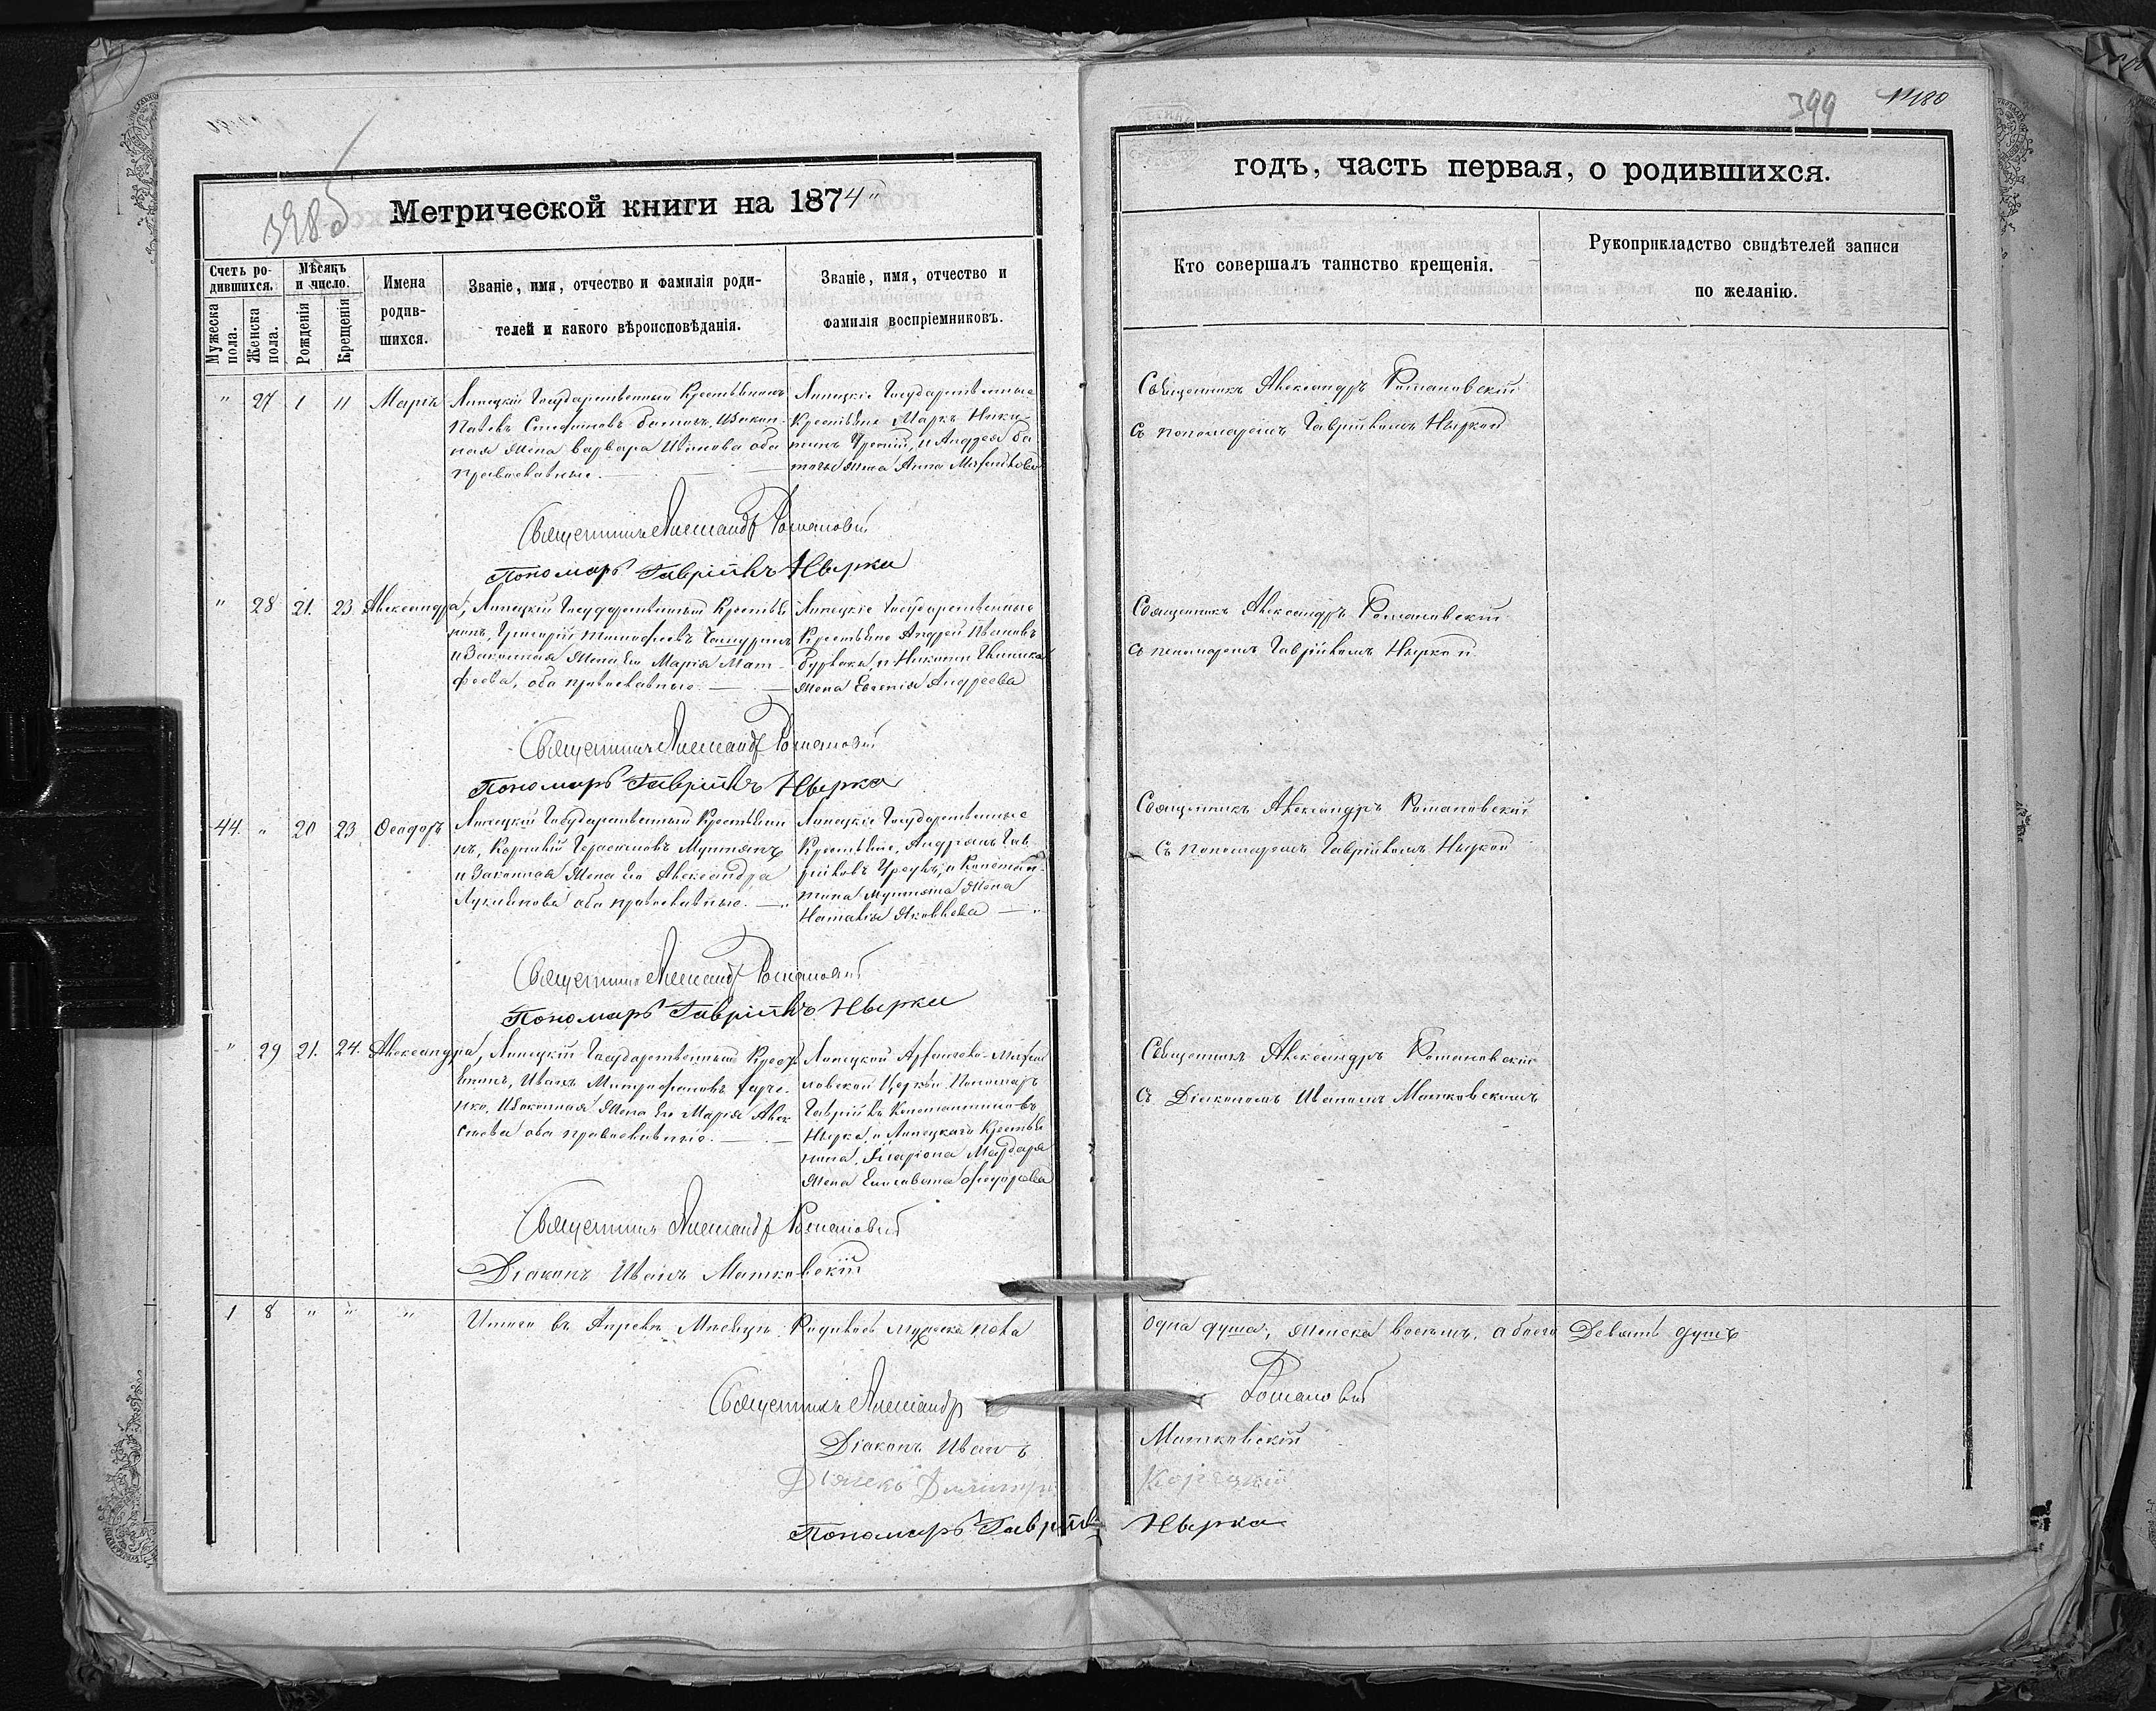 398об
Метрической книги на 1874
Счетъ ро-
дившихся.
Мѣсяцъ
и число.
Мужеска
пола.
Женска
пола.
Рожденія
Крещенія
Имена
родив-
шихся.
Званіе, имя, отчество и фамилія роди-
телей и какого вѣроисповѣданія.
Званіе, имя, отчество и
фамилія воспріемниковъ.
" 27 1 11 Марія
Липецкій Государственный Крестьянинъ
Павелъ Стефановъ Законн
ная жена Варвара Иванова оба
православные.
Липецкіе Государственные
Крестьяне Маркъ Ники-
и Андрея
жена Анна Михайлова
Священникъ Александръ Романовскій
Пономарь Гавріилъ Нырка
" 28 21. 23 Александра,
Липецкій Государственный Крестья
нинъ, Григорій Тимофеевъ
и Законная жена его Марія Мат-
феева, оба православные.
Липецкіе Государственные
Крестьяне Андрей Ивановъ
и Никиты
жена Евгенія Андреева
Священникъ Александръ Романовскій
Пономарь Гавріилъ Нырка
44. " 20 23 Феодоръ
Липецкій Государственный Крестьяни
нъ, Корнилій Герасимовъ Мунтянъ
и Законная жена его Александра
Лукіянова оба православные.
Липецкіе Государственные
Крестьяне, Андріанъ Гав
ріиловъ и Констан-
тина Мунтяна жена
Наталія Яковлева
Священникъ Александръ Романовскій
Пономарь Гавріилъ Нырка
" 29 21. 24. Александра,
Липецкій Государственный Крест
янинъ, Иванъ Митрофановъ
Законная жена его Марія Алек
сіева оба православные.
Липецкой Архангело-Михай
ловской Церкви Пономарь
Гавріилъ Константиновъ
Нырка, и Липецкаго Крестья
нина, Иларіона Мардаря
жена Елисавета Федорова
Священникъ Александръ Романовскій
Діаконъ Иванъ Матковскій
1 8 " " "
Итого въ Апрелѣ Мѣсяцѣ Родилось мужеска пола
Священникъ Александръ
Діаконъ Иванъ
Дьячекъ Димитрі
Пономарь Гавріилъ
399 180
годъ, часть первая, о родившихся.
Кто совершалъ таинство крещенія.
Рукоприкладство свидѣтелей записи
по желанію.
Священникъ Александръ Романовскій
съ пономаремъ Гавріиломъ Ныркой
Священникъ Александръ Романовскій
съ пономаремъ Гавріиломъ Ныркой
Священникъ Александръ Романовскій
съ Пономаремъ Гавріиломъ Ныркой
Священникъ Александръ Романовскій
съ Діакономъ Иваномъ Матковскимъ
одна душа, женска восемь, обоего Девять душъ
Романовскій
Матковскій
Нырка